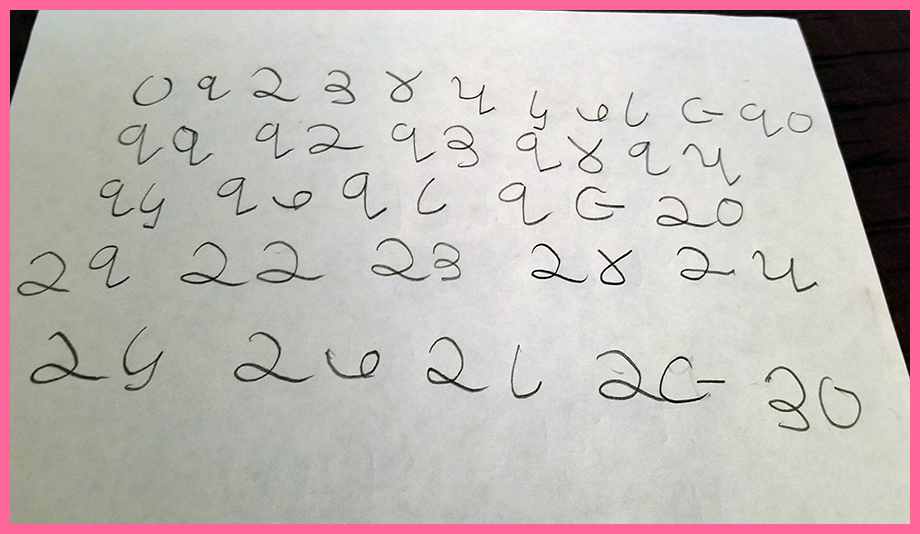 ૦ ૧ ૨ ૩ ૪ ૫ ૬ ૭ ૮ ૯ ૧૦
૧૧ ૧૨ ૧૩ ૧૪ ૧૫
૧૬ ૧૭ ૧૮ ૧૯ ૨૦
૨૧ ૨૨ ૨૩ ૨૪ ૨૫
૨૬ ૨૭ ૨૮ ૨૯ ૩૦